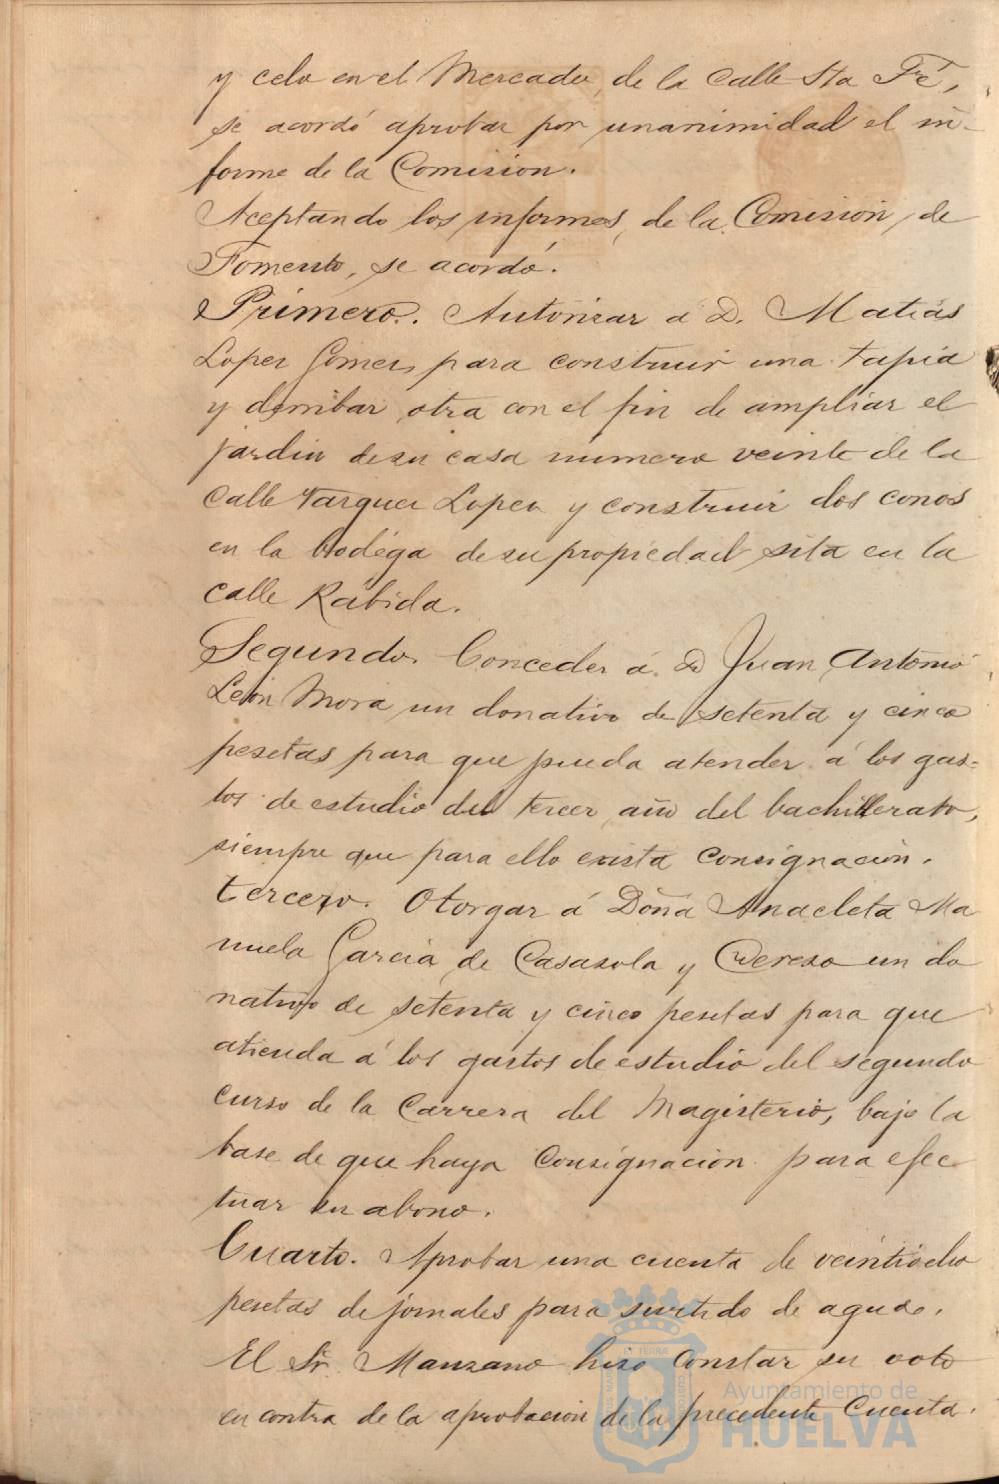 y celo en el Mercado, de la calle Sta Fé,
se acordó aprobar por unanimidad el in-
forme de la Comision.
Aceptando los informes, de la Comision, de
Fomento, se acordó.
Primero. Autorizar á D. Matias
Lopez Gomez, para construir una tapia
y derribar otra con el fin de ampliar el
jardin de su casa número veinte de la
calle Vazquez Lopez y construir dos conos
en la bodéga de su propiedad sita en la
calle Rábida.
Segundo. Conceder á D Juan Antonio
León Mora un donativo de setenta y cinco
pesetas para que pueda atender á los gas-
tos de estudio del tercer año del bachillerato,
siempre que para ello exista consignacion.
tercero. Otorgar á Doña Anacleta Ma
nuela Garcia de Casasola y Cerezo un do
nativo de setenta y cinco pesetas para que
atienda á los gastos de estudio del segundo
curso de la Carrera del Magisterio, bajo la
base de que haya Consignacion para efec
tuar su abono.
Cuarto. Aprobar una cuenta de veintiocho
pesetas de jornales para surtido de aguas.
El Sr. Manzano hizo Constar su voto
en contra de la aprobacion de la precedente Cuenta.
Ayuntamiento de
HUELVA